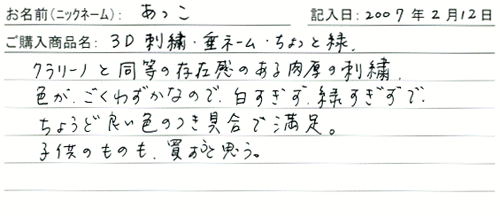 お名前(ニックネーム): あっこ 記入日: 2007年2月12日
ご購入商品名: 3D刺繍・垂ネーム・ちょっと緑.
クラリーノと同等の存在感のある肉厚の刺繍.
色が、ごくわずかなので、白すぎず、緑すぎずで、
ちょうど良い色のつき具合で満足。
子供のものも、買おうと思う。